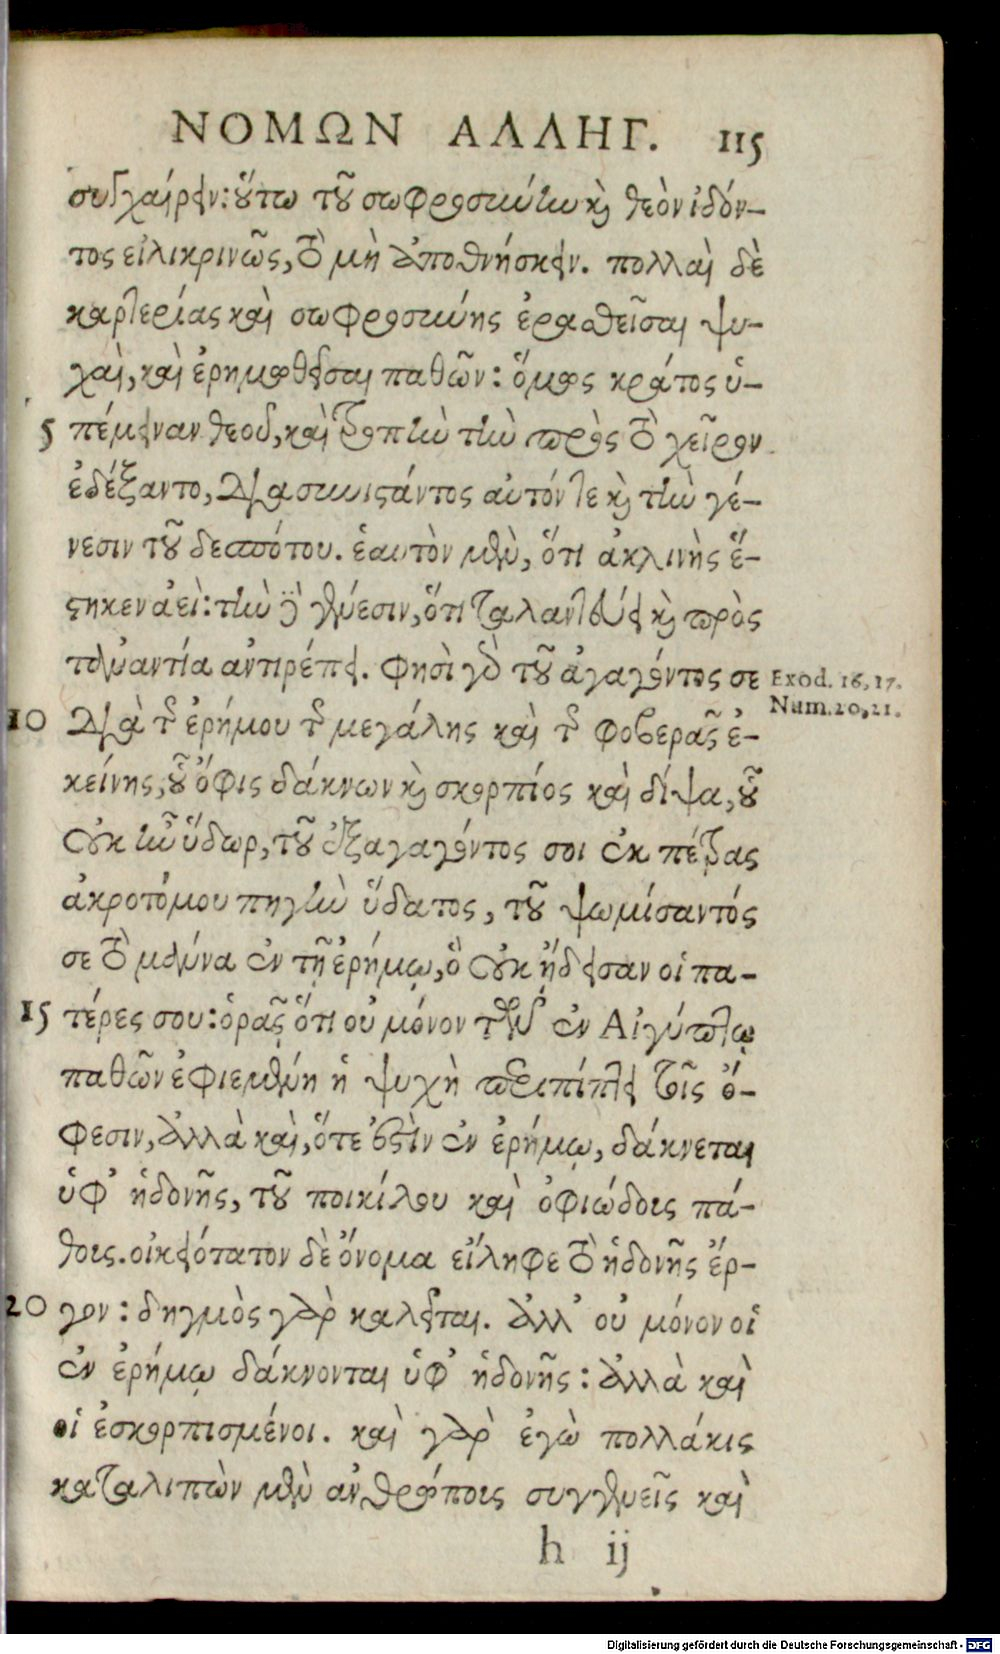 ΝΟΜΩΝ ΑΛΛΗΓ. 115
συγχαίρειν: οὕτω τοῦ σωφροσύνην καὶ θεὸν ἰδόν-
τος εἰλικρινῶς, τὸ μὴ ἀποθνήσκειν. πολλαὶ δὲ
καρτερίας καὶ σωφροσύνης ἐραθεῖσαι ψυ-
χαὶ, καὶ ἐρημωθεῖσαι παθῶν: ὅμως κράτος ὑ-
5 πέμειναν θεοῦ, καὶ τροπὴν τὴν πρὸς τὸ χεῖρον
ἐδέξαντο, διασυνιστάντος αὐτόν τε καὶ τὴν γέ-
νεσιν τοῦ δεσπότου. ἑαυτὸν μὲν, ὅτι ἀκλινὴς ἕ-
στηκεν ἀεὶ: τὴν δὲ γένεσιν, ὅτι ταλαντεύει καὶ πρὸς
τἀναντία ἀντιρέπει. φησὶ γὰρ τοῦ ἀγαγόντος σε
Exod. 16, 17.
Num. 20, 21.
10 διὰ τῆς ἐρήμου τῆς μεγάλης καὶ τῆς φοβερᾶς ἐ-
κείνης, οὗ ὄφις δάκνων καὶ σκορπίος καὶ δίψα, οὗ
οὐκ ἦν ὕδωρ, τοῦ ἐξαγαγόντος σοι ἐκ πέτρας
ἀκροτόμου πηγὴν ὕδατος, τοῦ ψωμίσαντός
σε τὸ μάννα ἐν τῇ ἐρήμῳ, ὃ οὐκ ᾔδεισαν οἱ πα-
15 τέρες σου: ὁρᾷς ὅτι οὐ μόνον τῶν ἐν Αἰγύπτῳ
παθῶν ἐφιεμένη ἡ ψυχὴ περιπίπτει τοῖς ὄ-
φεσιν, ἀλλὰ καὶ, ὅτε ἐστὶν ἐν ἐρήμῳ, δάκνεται
ὑφ' ἡδονῆς, τοῦ ποικίλου καὶ ὀφιώδους πά-
θους. οἰκειότατον δὲ ὄνομα εἴληφε τὸ ἡδονῆς ἔρ-
20 γον: δηγμὸς γὰρ καλεῖται. ἀλλ' οὐ μόνον οἱ
ἐν ἐρήμῳ δάκνονται ὑφ' ἡδονῆς: ἀλλὰ καὶ
οἱ ἐσκορπισμένοι. καὶ γὰρ ἐγὼ πολλάκις
καταλιπὼν μὲν ἀνθρώπους συγγενεῖς καὶ
h ij
Digitalisierung gefördert durch die Deutsche Forschungsgemeinschaft - DFG